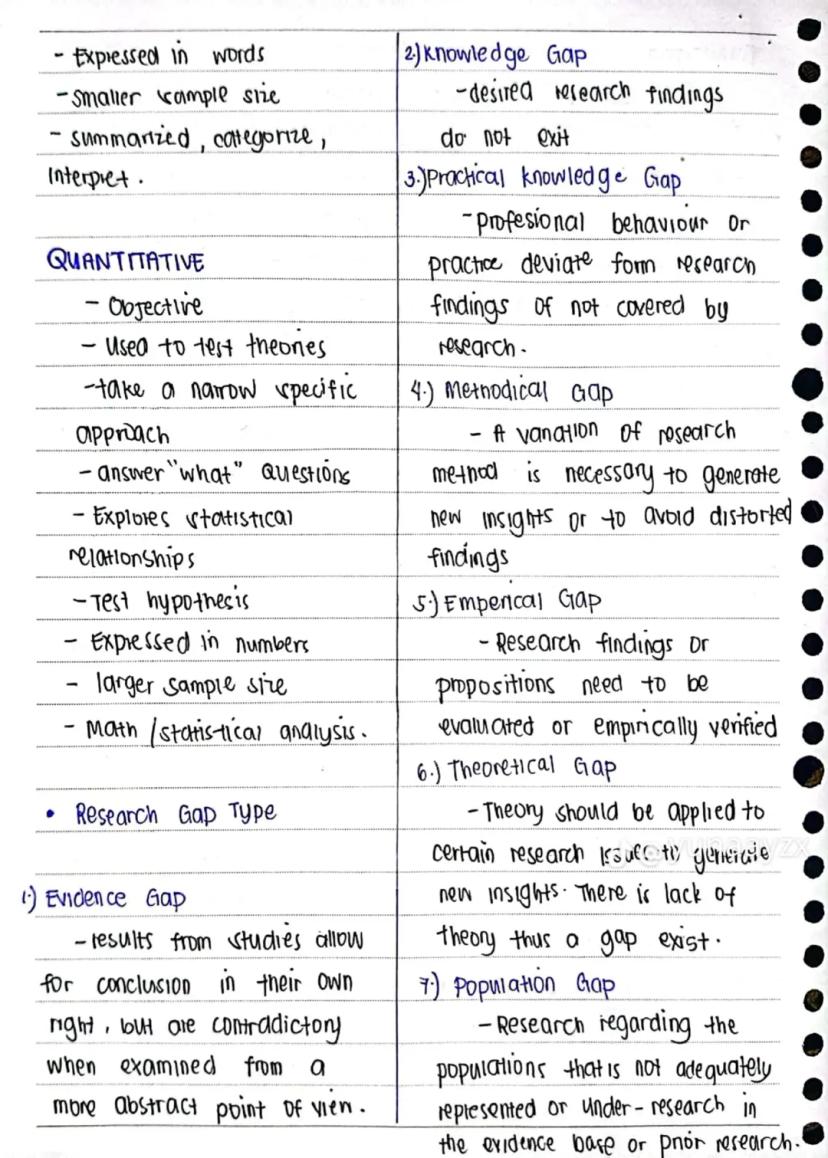 - Expressed in words
- smaller sample size
- summarized, categorize,
Interpret.
QUANTITATIVE
- Objective
- Used to test theories
- take a narrow specific
approach
- answer "what" Questions
- Explores statistical
relationships
- Test hypothesis
- Expressed in numbers
- larger sample size
- Math / statistical analysis.
• Research Gap Type
1.) Evidence Gap
- results from studies allow
for conclusion in their own
right, but are contradictory
when examined from a
more abstract point of vien.
2) Knowledge Gap
- desired research findings
do not exit
3.) Practical knowledge Gap
- profesional behaviour or
practice deviate form research
findings of not covered by
research.
4.) Methodical Gap
- A variation of research
method is necessary to generate
new insights or to avoid distorted
findings
5.) Emperical Gap
- Research findings or
propositions need to be
evaluated or empirically verified
6.) Theoretical Gap
- Theory should be applied to
certain research issues to generate
new insights. There is lack of
theory thus a gap exist.
7.) Population Gap
- Research regarding the
populations that is not adequately
represented or under-research in
the evidence base or prior research.